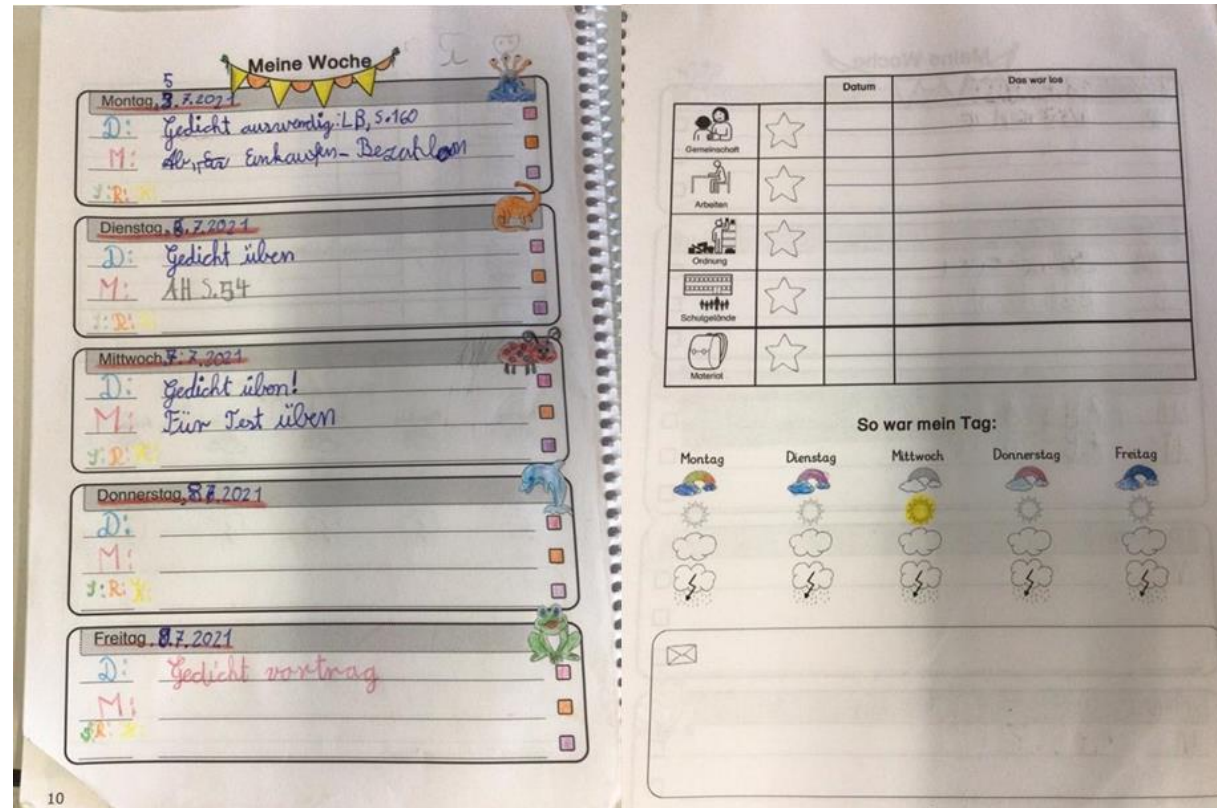 Meine Woche
5
Montag, 3.7.2021
D: Gedicht auswendig: LB, S.160
M: Ab, Einkaufen - Bezahlen
S: R:
Dienstag, 6.7.2021
D: Gedicht üben
M: AH S.54
S: R:
Mittwoch, 7.7.2021
D: Gedicht üben!
M: Für Test üben
S: R:
Donnerstag, 8.7.2021
D:
M:
S: R:
Freitag, 7.2021
D: Gedicht vortrag
M:
S: R:
10
Datum Das war los
Gemeinschaft
Arbeiten
Ordnung
Schulgelände
Material
So war mein Tag:
Montag Dienstag Mittwoch Donnerstag Freitag